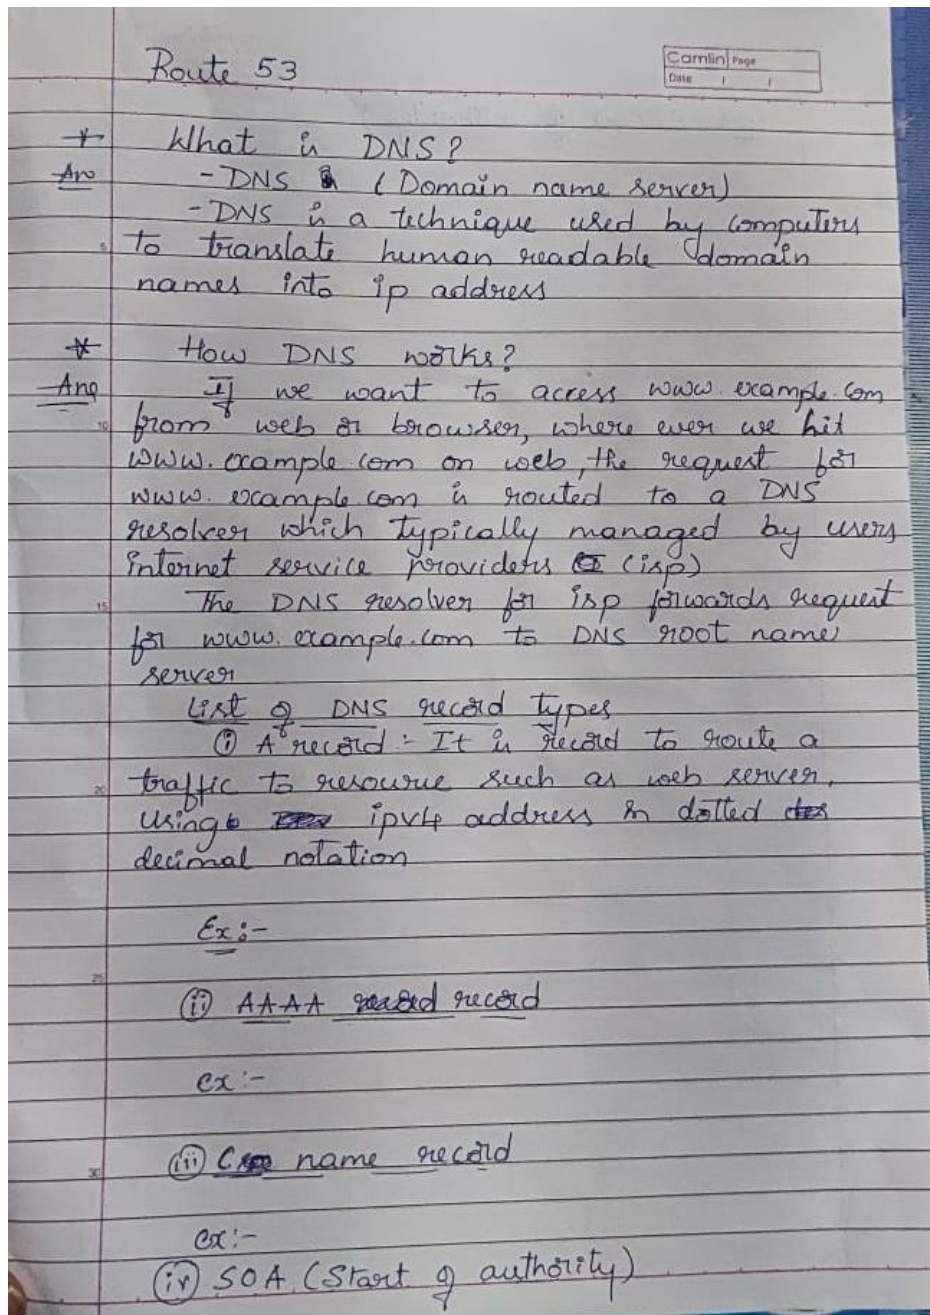 Route 53
Camlin Page
Date / /
* What is DNS?
Ans - DNS (Domain name server)
- DNS is a technique used by computers
5 to translate human readable domain
names into ip address
* How DNS works?
Ans If we want to access www.example.com
10 from web or browser, where ever we hit
www.example.com on web, the request for
www.example.com is routed to a DNS
resolver which typically managed by users
internet service providers (isp)
15 The DNS resolver for isp forwards request
for www.example.com to DNS root name
server
List of DNS record types
(i) A record :- It is record to route a
20 traffic to resource such as web server,
using ipv4 address in dotted
decimal notation
Ex :-
25
(ii) AAAA record
ex :-
30 (iii) C name record
ex :-
(iv) SOA (Start of authority)